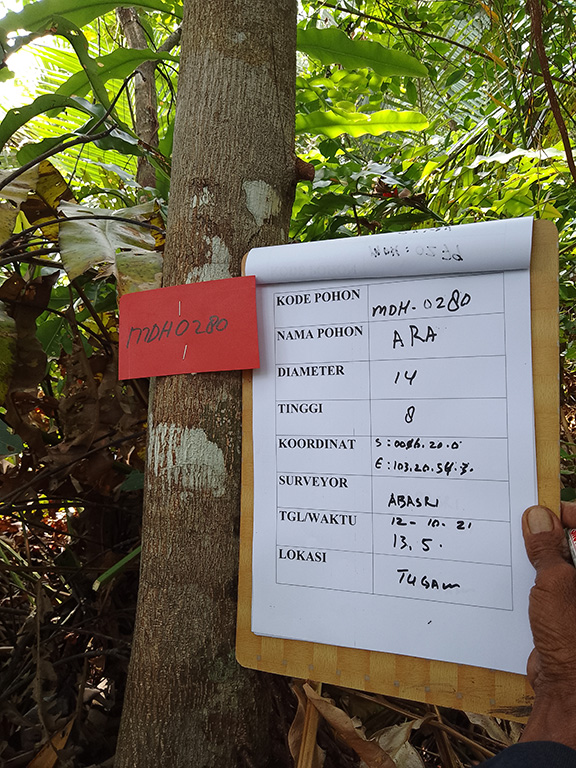 MDH0280
KODE POHON MDH-0280
NAMA POHON ARA
DIAMETER 14
TINGGI 8
KOORDINAT S:0016.20.0
E:103.20.54.3.
SURVEYOR ABASRI
TGL/WAKTU 12-10-21
13.5.
LOKASI TUGAM